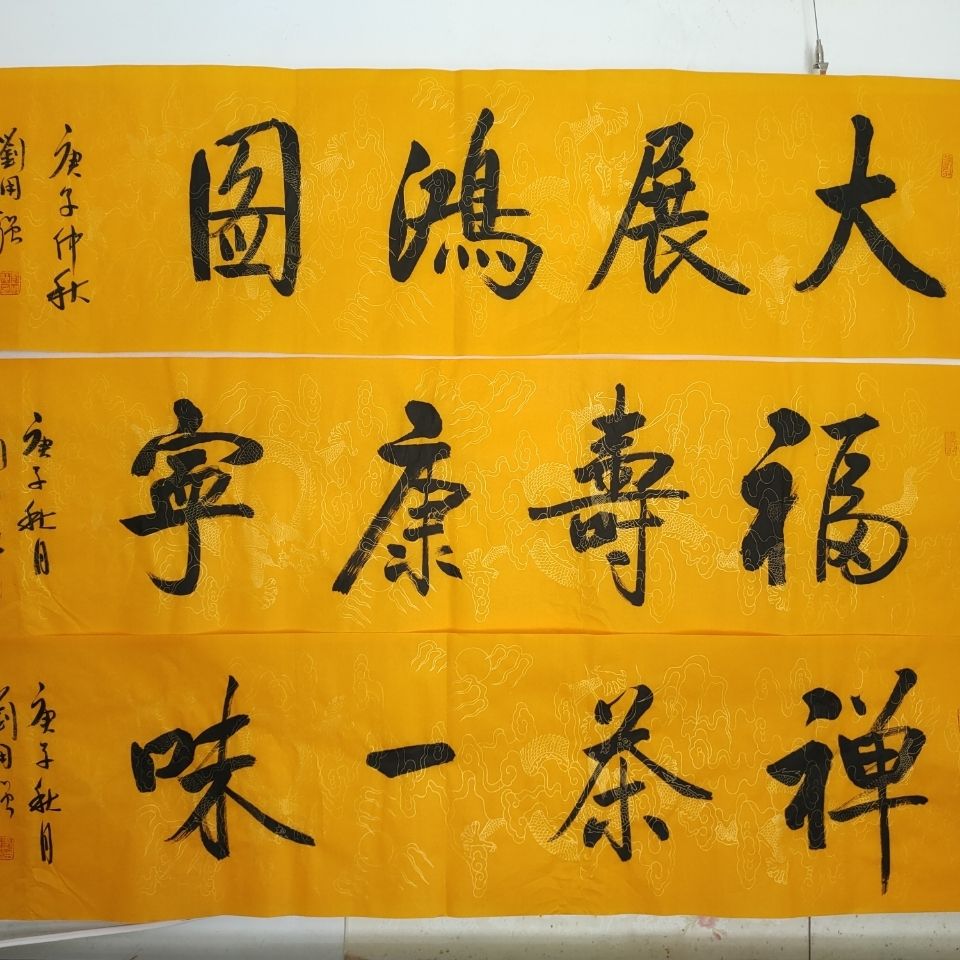 大展鴻圖
庚子仲秋
劉用強
福壽康寧
庚子秋月
禅茶一味
庚子秋月
劉用強